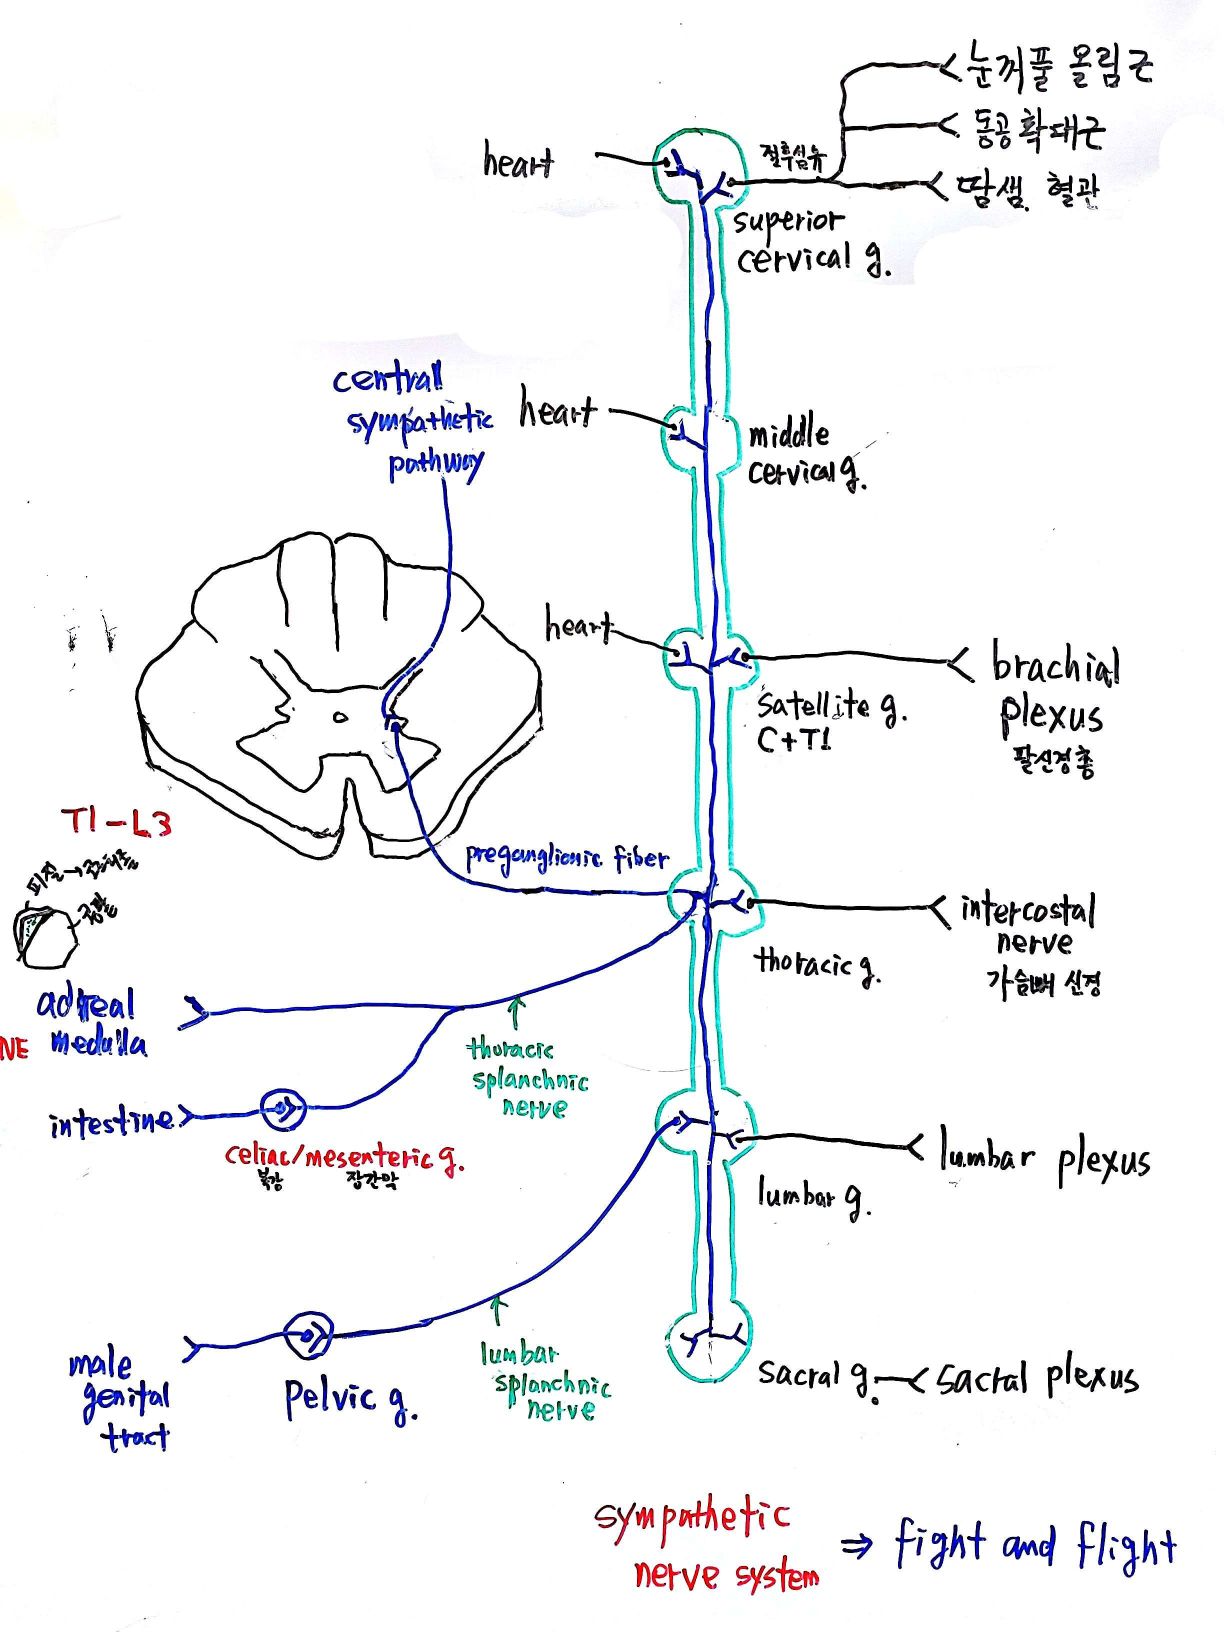 눈꺼풀 올림근
동공확대근
절후섬유
땀샘, 혈관
heart
superior
cervical g.
central
sympathetic
pathway
heart
middle
cervical g.
heart
brachial
plexus
팔신경총
satellite g.
C+T1
T1-L3
preganglionic fiber
intercostal
nerve
가슴뼈 신경
thoracic g.
adreal
medulla
NE
thoracic
splanchnic
nerve
intestine
celiac/mesenteric g.
복강 장간막
lumbar plexus
lumbar g.
male
genital
tract
Pelvic g.
lumbar
splanchnic
nerve
sacral g.
sacral plexus
sympathetic
nerve system
⇒ fight and flight